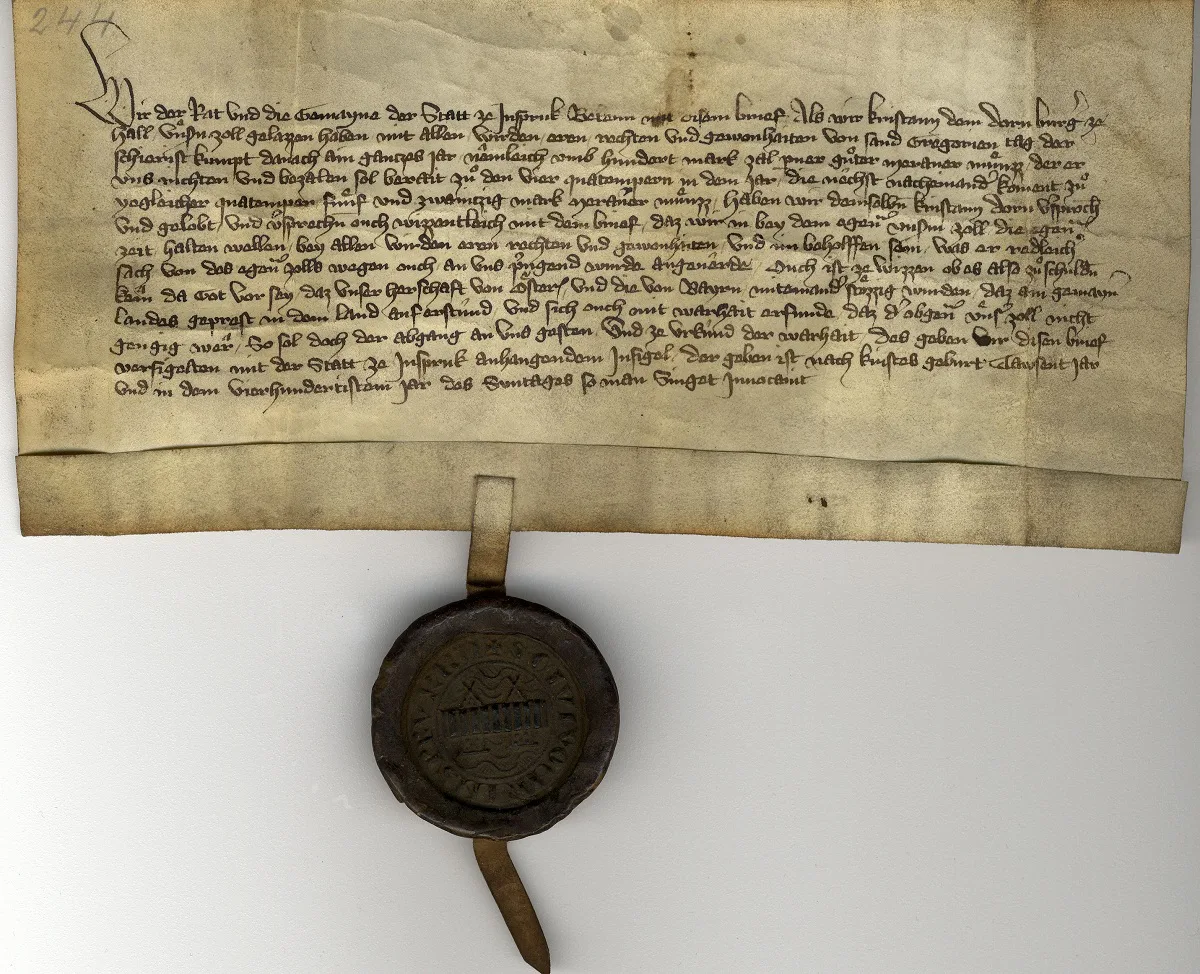 244
Wir der Rat vnd die Gemayne der Statt ze Inspruk Bekenn mit disem brief Als wir kristann dem dorn burgˀ ze
hall vnsˀn zoll gelazzen haben mit allen wirden eren rechten vnd gewonhaiten von sand Gregorien tag der
schierist kumpt darnach ain ganczes jar nemleich vmb hundert mark zal pˀner guͦter meraner muͤnzz der er
vns richten vnd bezalen sol berait zuͦ den vier quatempern in dem jar die nechst nacheinandˀ koment zuͦ
yegleicher quatemper fuͤnf vnd zwaintzig mark meraner muͤnzz haben wir demselbn kristann dorn vˀsproch
vnd gelobt vnd vˀsprechn ouch wizzentleich mit dem brief daz wir in bey dem egen̄ vnsˀm zoll die egen̄
zeit halten wellen bey allen wirden eren rechten vnd gewonhaiten vnd im beholffen sein was er redleichˀ
sach von des egen̄ zolls wegen ouch an vns pringend wurde angeuerde Ouch ist ze wizzen ob es also zuͦ schuldn̄
kem da Got vor sey daz vnser herschaft von Osterˀ vnd die von Bayrn miteinandˀ stoͤzzig wurden daz ain gemainˀ
landes geprest in dem land auferstuͤnd vnd sich ouch mit warhait erfunde daz dˀ obgen̄ vnsˀ zoll nicht
gengig wer So sol doch der abgang an vns gesten Vnd ze vrkund der warhait des geben wir disen brief
versigelten mit der Statt ze Inspruk anhangendem Insigel der geben ist nach kristes geburt Tawsent jar
vnd in dem vierhundertistem jar des Suntages so man Singet Inuocauit